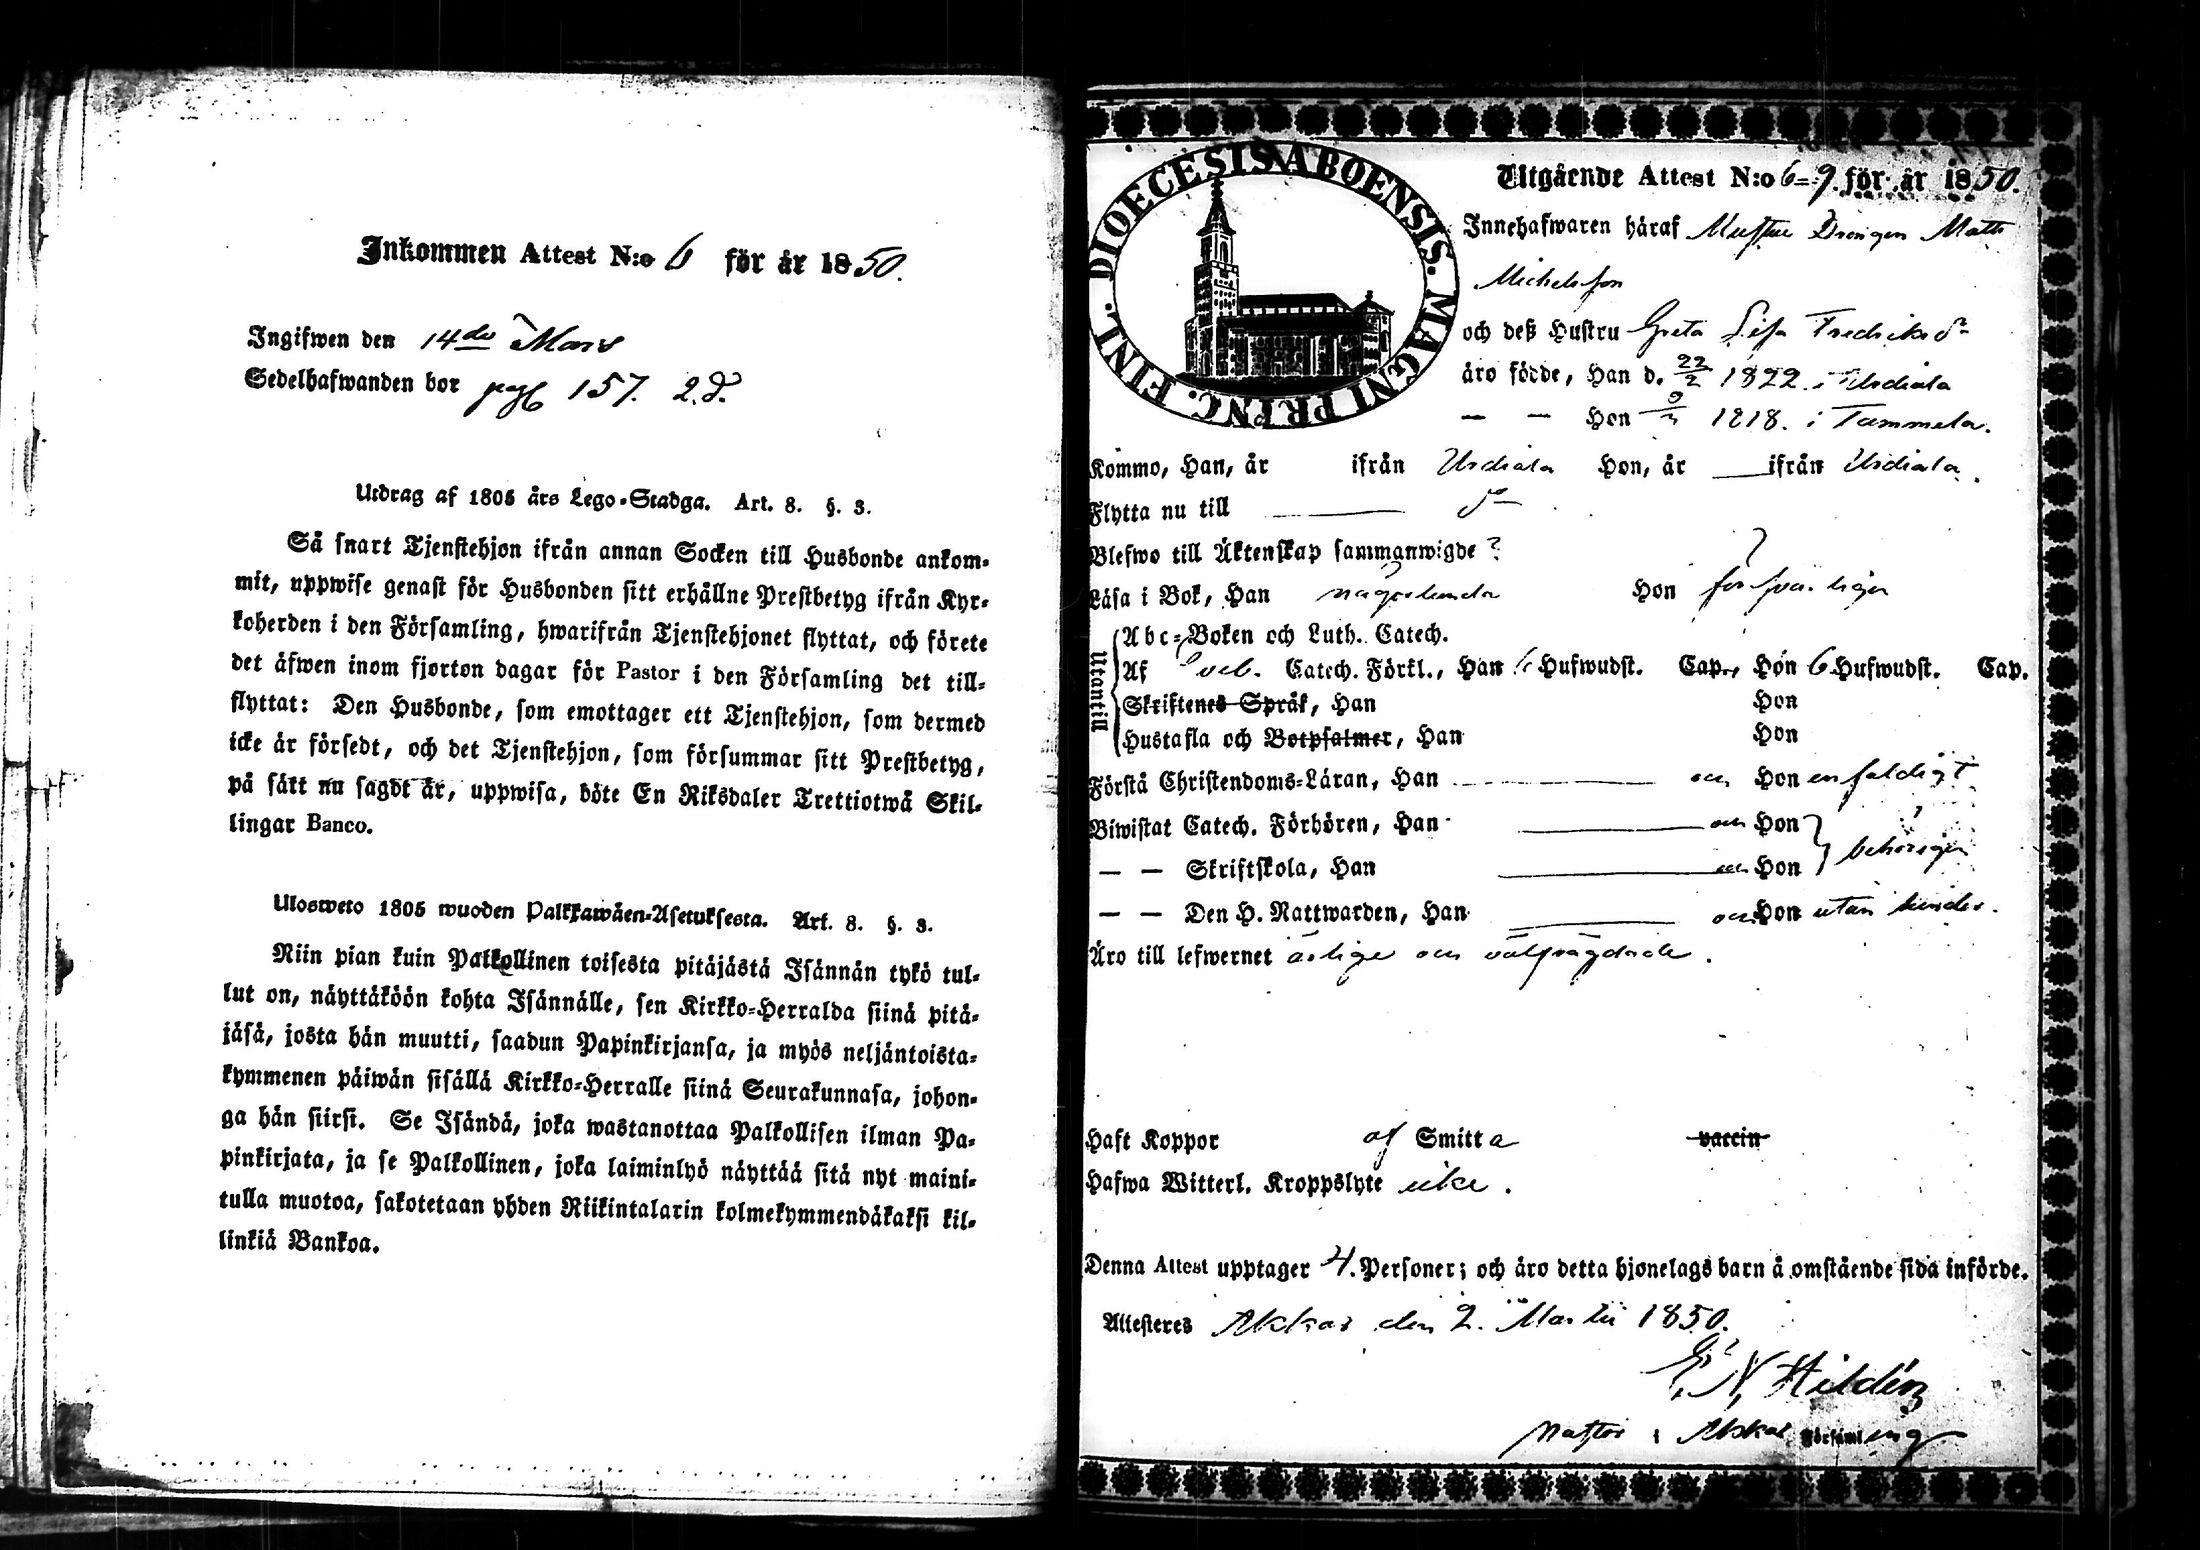 Inkommen Attest N:o 6 för år 1850.
Ingifwen den 14de Mars
Sedelhafwanden bor pag 157. 2.d.
Utdrag af 1805 års Lego-Stadga. Art. 8. §. 3.
Så snart Tjenstehjon ifrån annan Socken till Husbonde ankom-
mit, uppwise genast för Husbonden sitt erhållne Prestbetyg ifrån Kyr-
koherden i den Församling, hwarifrån Tjenstehjonet flyttat, och förete
det äfwen inom fjorton dagar för Pastor i den Församling det till-
flyttat: Den Husbonde, som emottager ett Tjenstehjon, som dermed
icke är försedt, och det Tjenstehjon, som försummar sitt Prestbetyg,
på sätt nu sagdt är, uppwisa, böte En Riksdaler Trettiotwå Skil-
lingar Banco.
Ulosweto 1805 wuoden Palkkawäen-Asetuksesta. Art. 8. §. 3.
Niin pian kuin Palkollinen toisesta pitäjästä Isännän tykö tul-
lut on, näyttäköön kohta Isännälle, sen Kirkko-Herralda siinä pitä-
jäsä, josta hän muutti, saadun Papinkirjansa, ja myös neljäntoista-
kymmenen päiwän sisällä Kirkko-Herralle siinä Seurakunnasa, johon-
ga hän siirsi. Se Isändä, joka wastanottaa Palkollisen ilman Pa-
pinkirjata, ja se Palkollinen, joka laiminlyö näyttää sitä nyt maini-
tulla muotoa, sakotetaan yhden Riikintalarin kolmekymmendäkaksi kil-
linkiä Bankoa.
DIOECESIS ABOENSIS. MAGNI PRINC. FINL.
Utgående Attest N:o 6-9 för år 1850.
Innehafwaren häraf Drengen Matts
Michelsson
och deß Hustru Greta Lisa Fredriksdr
äro födde, Han d. 22/2 1822 i Urdiala
— — Hon 1818. i Tammela.
Kommo, Han, år ifrån Urdiala Hon, år — ifrån Urdiala.
Flytta nu till — do
Blefwo till Äktenskap sammanwigde?
Läsa i Bok, Han någorlunda Hon försvarligen
Utantill
Abc-Boken och Luth. Catech.
Af Sveb. Catech. Förkl., Han 6 Hufwudst. Cap., Hon 6 Hufwudst. Cap.
Skriftenes Språk, Han Hon
Hustafla och Botpsalmer, Han Hon
Förstå Christendoms-Läran, Han — och Hon enfaldigt
Biwistat Catech. Förhören, Han — och Hon
— — Skriftskola, Han — och Hon behörigen
— — Den H. Nattwarden, Han — och Hon utan hinder.
Äro till lefwernet ärlige och välfrägdade.
Haft Koppor af Smitta vaccin
Hafwa Witterl. Kroppslyte icke.
Denna Attest upptager 4. Personer; och äro detta hjonelags barn å omstående sida införde.
Attesteres Akkas den 2. Martii 1850.
E. N. Hildén
Pastor i Akkas Församling